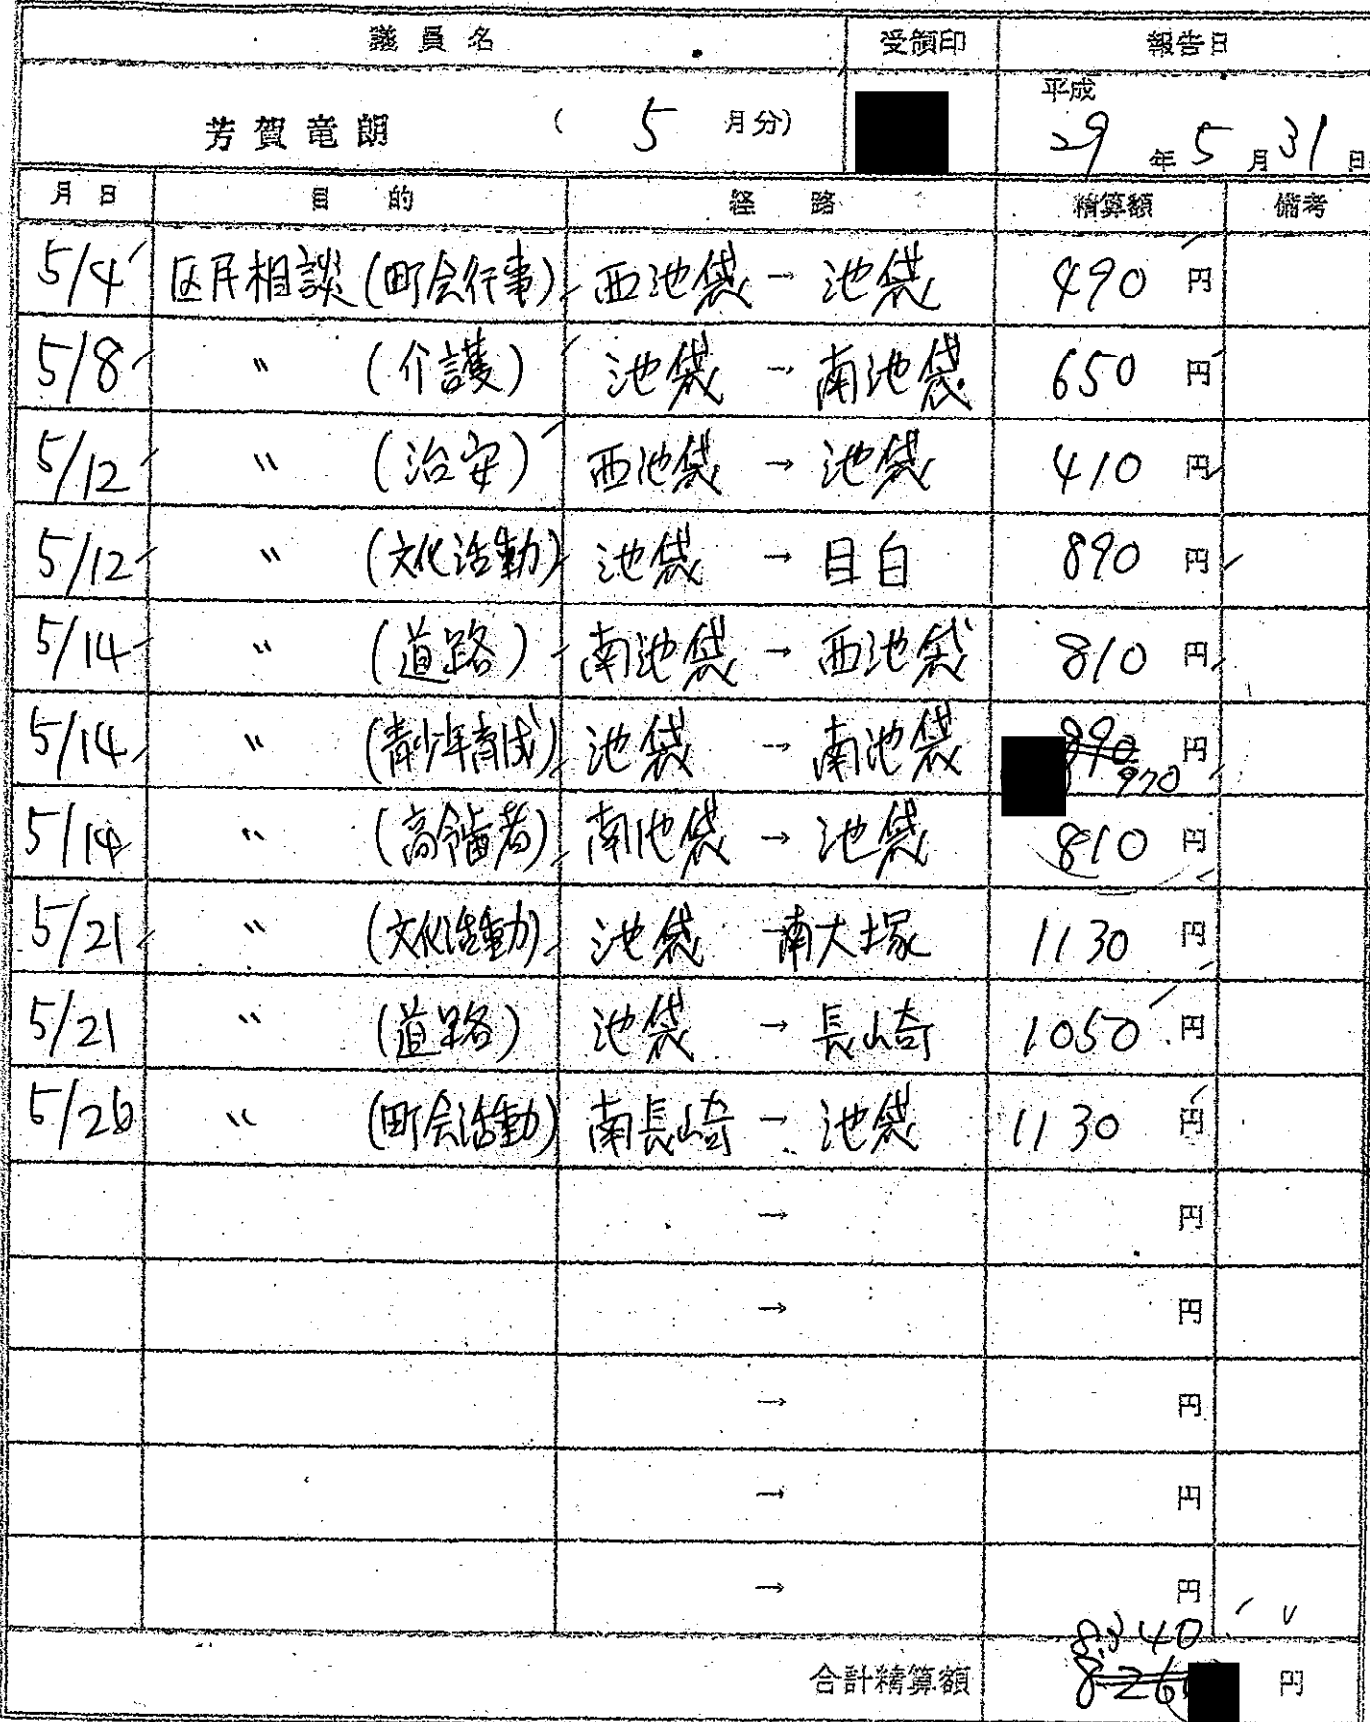 議員名 受領印 報告日
芳賀竜朗 ( 5 月分) 平成 29 年 5 月 31 日
月日 目的 経路 精算額 備考
5/4 区民相談 (町会行事) 西池袋 → 池袋 490 円
5/8 〃 (介護) 池袋 → 南池袋 650 円
5/12 〃 (治安) 西池袋 → 池袋 410 円
5/12 〃 (文化活動) 池袋 → 目白 890 円
5/14 〃 (道路) 南池袋 → 西池袋 810 円
5/14 〃 (青少年育成) 池袋 → 南池袋 890 970 円
5/14 〃 (高齢者) 南池袋 → 池袋 810 円
5/21 〃 (文化活動) 池袋 → 南大塚 1130 円
5/21 〃 (道路) 池袋 → 長崎 1050 円
5/26 〃 (町会活動) 南長崎 → 池袋 1130 円
→ 円
→ 円
→ 円
→ 円
→ 円
8,340
合計精算額 826 円